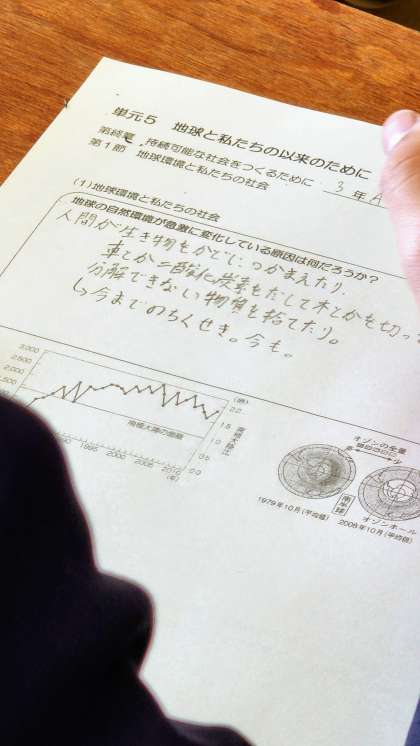 単元5 地球と私たちの以来のために
第終章 持続可能な社会をつくるために
第1節 地球環境と私たちの社会
3年A
(1)地球環境と私たちの社会
地球の自然環境が急激に変化している原因は何だろうか?
人間が生き物をかてにつかまえたり、
車とか二酸化炭素をだして木とかを切っ
分解できない物質を捨てたり。
今までのちくせき。今も。
3,000
2,500
2,000
1,500
(倍)
2.0
1.5
1.0
0.5
0.0
南極大陸の面積
南極大陸比
1990 1995 2000 2005 2010
(年)
オゾンの全量
多 少
南半球
オゾンホール
1979年10月(平均値)
2008年10月(平均値)